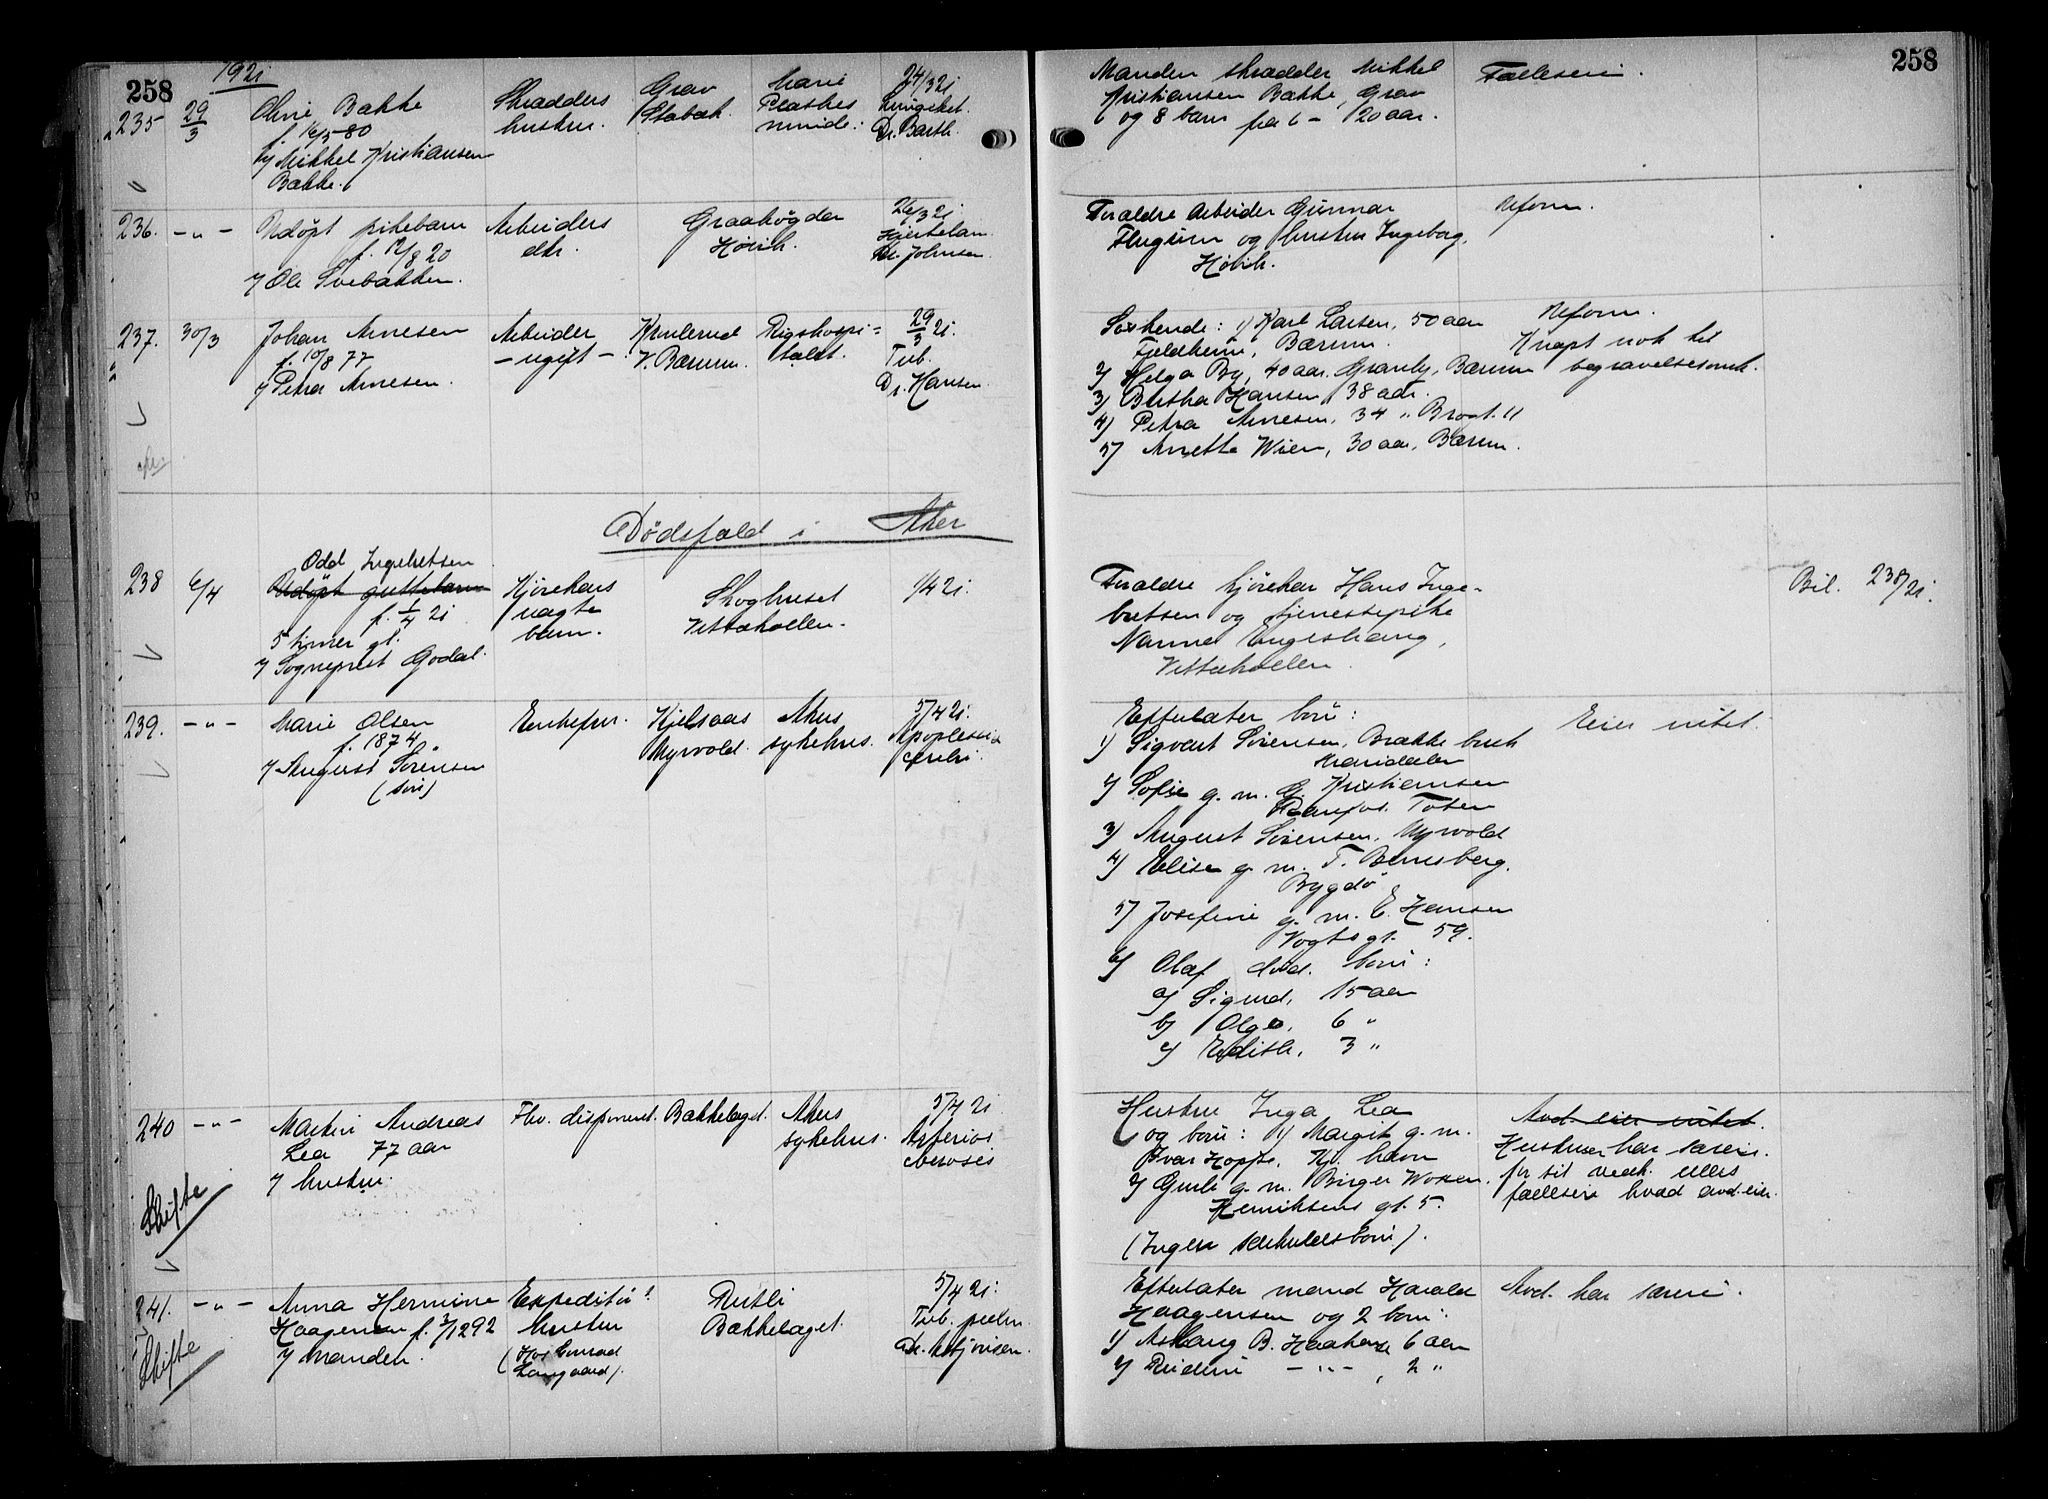 258
1921
235 29/3
Oline Bakke
f. 16/5-80
v/ Mikkel Kristiansen
Bakke.
Skrædders
hustru.
Grav
Stabæk.
Marie
Plathes
minde.
24/3 21
Dr. Barth.
Manden skrædder Mikkel
Kristiansen Bakke, Grav
og 8 barn fra 6 - 20 aar.
Fælleseie.
258
236. -"-
Udøpt pikebarn
f. 12/8 20
v/ Ole Svebakken.
Arbeiders
dtr.
Graahøgda
Høvik.
26/3 21
Dr. Johnsen.
Foreldre Arbeider Gunnar
og hustru Ingeborg,
Høvik.
Uform.
237. 30/3
Johan Arnesen
f. 10/8 77
v/ Petra Arnesen.
Arbeider
- ugift -
V. Bærum.
Rigshospi=
talet.
29/3 21.
Tub.
Dr. Hansen.
Søskende: 1/ Karl Larsen, 50 aar
Fjeldheim, Bærum.
2/ Helga By, 40 aar. Granly, Bærum
3) Bertha Hansen, 38 aar.
4) Petra Arnesen, 34 " Brogt. 11
5) Anette Wien, 30 aar, Bærum.
Uform.
Knapt nok til
begravelsesomk.
Dødsfald i Aker
238 6/4
Odd Ingebretsen
Udøpt guttebarn
f. 1/4 21
5 timer gl.
v/ Sogneprest Godal.
Kjørekars
uegte
barn.
Skoghuset
Vettakollen.
1/4 21.
Foreldre kjørekar Hans Inge-
bretsen og tjenestepike
Nanna Engeshaug,
Vettakollen.
Bil. 238/21.
239. -"-
Marie Olsen
f. 1874
v/ August Sørensen
(søn)
Enkefru.
Kjelsaas
Myrvold.
Akers
sykehus.
5/4 21.
Apoplexia
cerebri.
Efterlater barn:
1) Sigvart Sørensen, Brække bruk
Maridalen
2) Sofie g. m. G. Kristiansen
Raufos. Toten
3) August Sørensen, Myrvold
4) Elise g. m. T. Bernsberg,
Bygdø
5) Josefine g. m. E. Hansen
Vogtsgt. 59.
6) Olaf død. barn:
a) Sigurd, 15 aar
b) Olga, 6 "
c) Edith, 3 "
Eier intet.
240 -"-
Martin Andreas
Lea 77 aar
v/ hustru.
Skifte
Fhv. disponent.
Bækkelaget.
Akers
sykehus.
5/4 21
Arterios
clerosis
Hustru Inga Lea
og barn: 1) Margit g. m.
Ivar Hoppe, Kj. havn
2) Gurli g. m. Birger Woxen,
Henriksens gt. 5.
(Ingen særkuldsbarn).
Avd. eier intet.
Hustruen har særeie
for sit vedk. ellers
fælleseie hvad avd. eier.
241. -"-
Anna Hermine
Haagensen f. 3/12 92
v/ manden.
Skifte
Expeditørs
hustru
(Hos Conrad
Langaard).
Rutli
Bækkelaget.
5/4 21.
Tub. pulm.
Efterlater mand Harald
Haagensen og 2 barn:
1) Aslaug B. Haakense 6 aar
2) Reidun -"- , 2 "
Avd. har særeie.